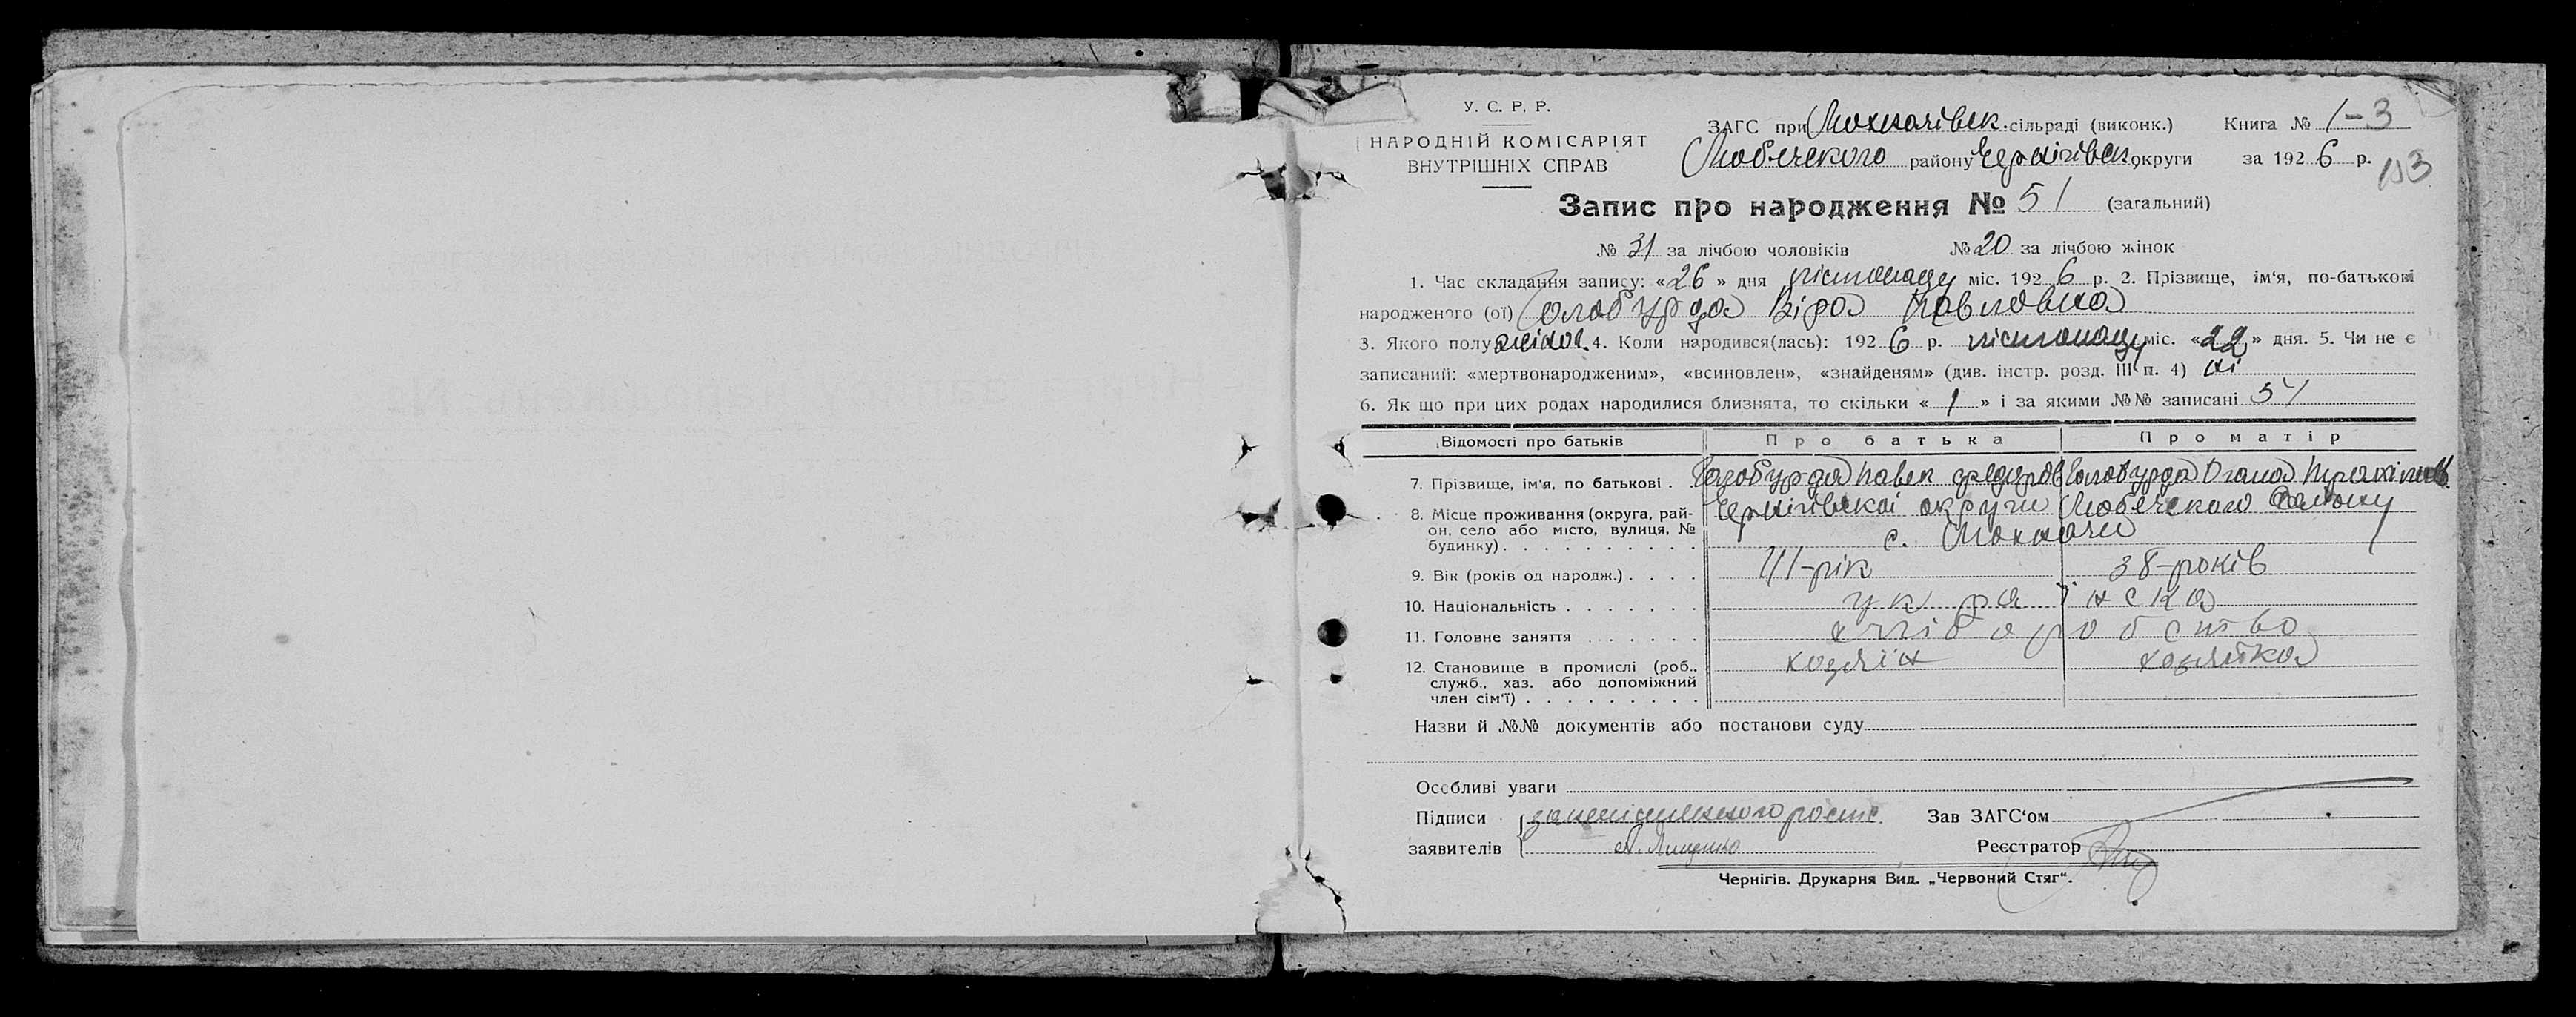 У. С. Р. Р.
НАРОДНІЙ КОМІСАРІЯТ
ВНУТРІШНІХ СПРАВ
ЗАГС при Мохначівск. сільраді (виконк.) Книга № 1-3
Любечского району Чернігівск. округи за 1926 р.
193
Запис про народження № 51 (загальний)
№ 31 за лічбою чоловіків № 20 за лічбою жінок
1. Час складання запису: «26» дня листопаду міс. 1926 р. 2. Прізвище, ім'я, по-батькові
народженого (ої) Голобурда Віра Павловна
3. Якого полу жіноч. 4. Коли народився(лась): 1926 р. листопаду міс. «22» дня. 5. Чи не є
записаний: «мертвонародженим», «всиновлен», «знайденям» (див. інстр. розд. III п. 4) ні
6. Як що при цих родах народилися близнята, то скільки «1» і за якими №№ записані 51
Відомості про батьків Про батька Про матір
7. Прізвище, ім'я, по батькові . Голобурда Павел Федоров Голобурда
8. Місце проживання (округа, рай- Чернігівскої округи Любечского району
он, село або місто, вулиця, № с. Мохначи
будинку) . . . . . . . . . .
9. Вік (років од народж.) . . . . 41-рік 38-років
10. Національність . . . . . . . українска
11. Головне заняття . . . . . . хліборобство
12. Становище в промислі (роб., хозяїн хозяйка
служб., хаз. або допоміжний
член сім'ї) . . . . . . . . .
Назви й №№ документів або постанови суду
Особливі уваги
Підписи Зав ЗАГС'ом
заявителів Реєстратор
Чернігів. Друкарня Вид. „Червоний Стяг".